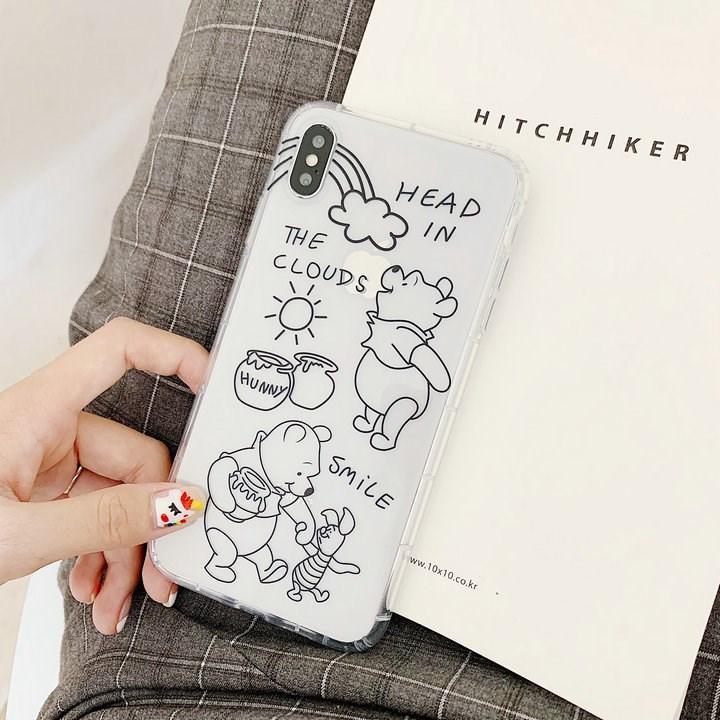 HITCHHIKER
HEAD
IN
THE
CLOUDS
HUNNY
SMiLE
www.10x10.co.kr